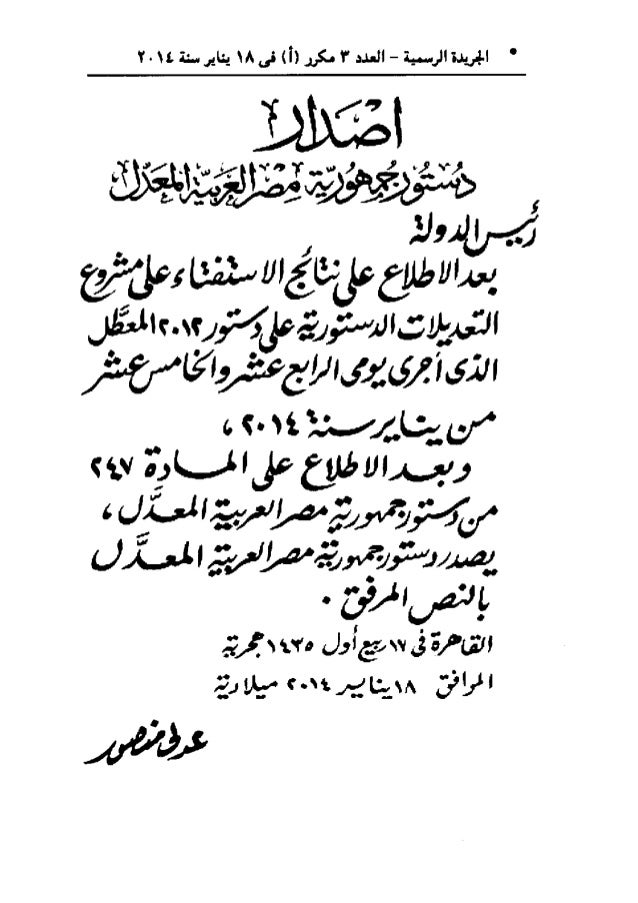 الجريدة الرسمية – العدد ٣ مكرر (أ) فى ١٨ يناير سنة ٢٠١٤
اصدار
دستور جمهورية مصر العربية المعدل
رئيس الدولة
بعد الاطلاع على نتائج الاستفتاء على مشروع
التعديلات الدستورية على دستور ٢٠١٢ المعطَّل
الذى أجرى يومى الرابع عشر والخامس عشر
من يناير سنة ٢٠١٤ ،
وبعد الاطلاع على المادة ٢٤٧
من دستور جمهورية مصر العربية المعدَّل ،
يصدر دستور جمهورية مصر العربية المعدَّل
بالنص المرفق .
القاهرة فى ١٧ ربيع أول ١٤٣٥ هجرية
الموافق ١٨ يناير ٢٠١٤ ميلادية
عدلى منصور